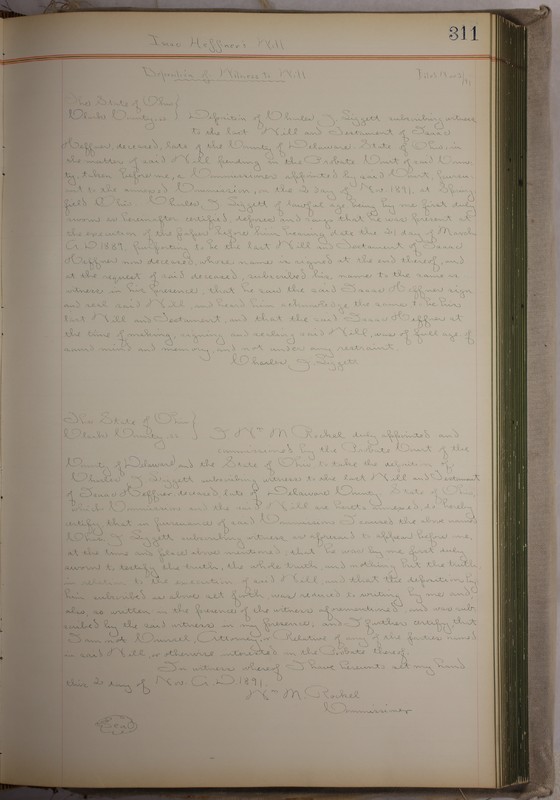 311
Isaac Heffner's Will
Deposition of Witness to Will
The State of Ohio
Clarke County, ss Deposition of Charles J. subscribing witness
to the last Will and Testament of Isaac
Heffner, deceased, late of the County of Delaware, State of Ohio, in
the matter of said Will pending in the Probate Court of said Coun-
ty, taken before me, a Commissioner appointed by said Court, pursu-
ant to the annexed Commission, on the 2 day of Nov. 1891, at Spring
field Ohio. Charles J. of lawful age being by me first duly
sworn as hereinafter certified, deposes and says that he was present at
the execution of the paper before him bearing date the 21 day of March
A.D. 1889, purporting to be the last Will and Testament of Isaac
Heffner now deceased, whose name is signed at the end thereof; and
at the request of said deceased, subscribed his name to the same as
witness in his presence; that he saw the said Isaac Heffner sign
and seal said Will, and heard him acknowledge the same to be his
last Will and Testament, and that the said Isaac Heffner at
the time of making, signing and sealing said Will, was of full age of
sound mind and memory, and not under any restraint.
Charles J.
The State of Ohio
Clarke County, ss I Wm M. Rockel duly appointed and
commissioned by the Probate Court of the
County of Delaware and the State of Ohio to take the deposition of
Charles J. subscribing witness to the last Will and Testament
of Isaac Heffner deceased late of Delaware County State of Ohio
which Commission and the said Will are hereto annexed, do hereby
certify that in pursuance of said Commission I caused the above named
subscribing witness as aforesaid to appear before me,
at the time and place above mentioned; that he was by me first duly
sworn to testify the truth, the whole truth and nothing but the truth
in relation to the execution of said Will, and that the deposition by
him subscribed as above set forth, was reduced to writing by me and
also, as written in the presence of the witness aforementioned, and was sub-
scribed by the said witness in my presence; and I further certify that
I am not Counsel, Attorney or Relative of any of the parties named
in said Will, or otherwise interested in the Probate thereof.
In witness whereof I have hereunto set my hand
this 2 day of Nov. A.D. 1891
Wm M. Rockel
Commissioner